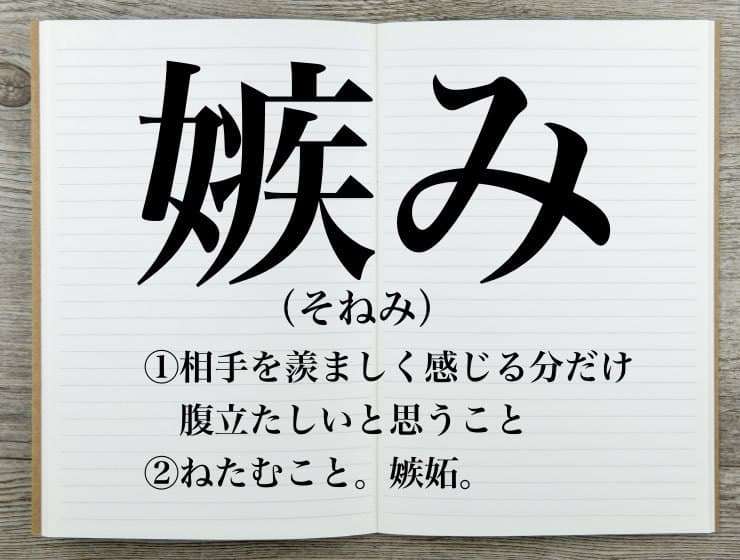 嫉み
（そねみ）
①相手を羨ましく感じる分だけ
腹立たしいと思うこと
②ねたむこと。嫉妬。